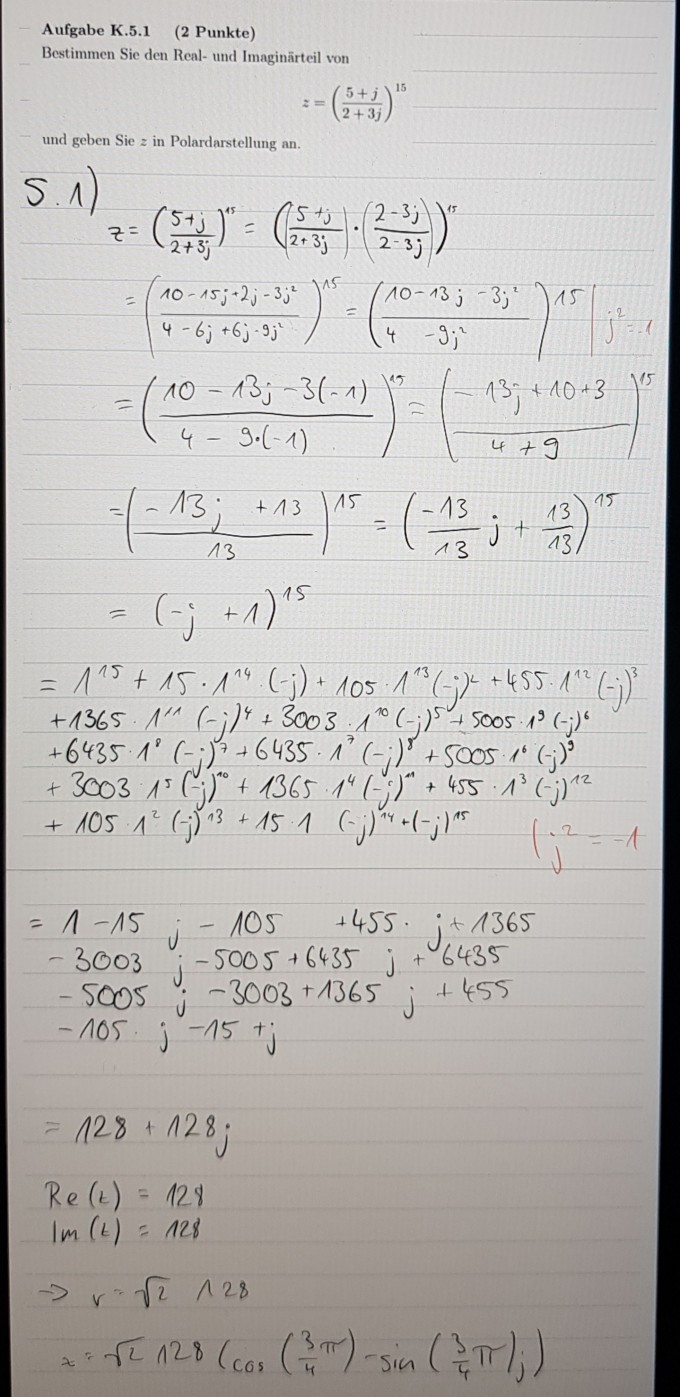 Aufgabe K.5.1 (2 Punkte)
Bestimmen Sie den Real- und Imaginärteil von
z = ((5 + j)/(2 + 3j))^15
und geben Sie z in Polardarstellung an.
5.1)
z = ((5+j)/(2+3j))^15 = (((5+j)/(2+3j)) · ((2-3j)/(2-3j)))^15
= ((10-15j+2j-3j²)/(4-6j+6j-9j²))^15 = ((10-13j-3j²)/(4 -9j²))^15 | j²=-1
= ((10-13j-3(-1))/(4-9·(-1)))^15 = ((-13j+10+3)/(4+9))^15
= ((-13j +13)/13)^15 = ((-13/13)j + 13/13)^15
= (-j +1)^15
= 1^15 + 15·1^14·(-j) + 105·1^13(-j)^2 + 455·1^12(-j)^3
+1365·1^11(-j)^4 + 3003·1^10(-j)^5 + 5005·1^9(-j)^6
+6435·1^8(-j)^7 + 6435·1^7(-j)^8 + 5005·1^6(-j)^9
+ 3003·1^5(-j)^10 + 1365·1^4(-j)^11 + 455·1^3(-j)^12
+ 105·1^2(-j)^13 + 15·1 (-j)^14 + (-j)^15
(j² = -1
= 1 -15 j - 105 +455· j + 1365
- 3003 j - 5005 + 6435 j + 6435
- 5005 j - 3003 + 1365 j + 455
- 105· j - 15 + j
= 128 + 128j
Re(z) = 128
Im(z) = 128
→ r = √2 128
z = √2 128 (cos(3/4 π) - sin(3/4 π)j)